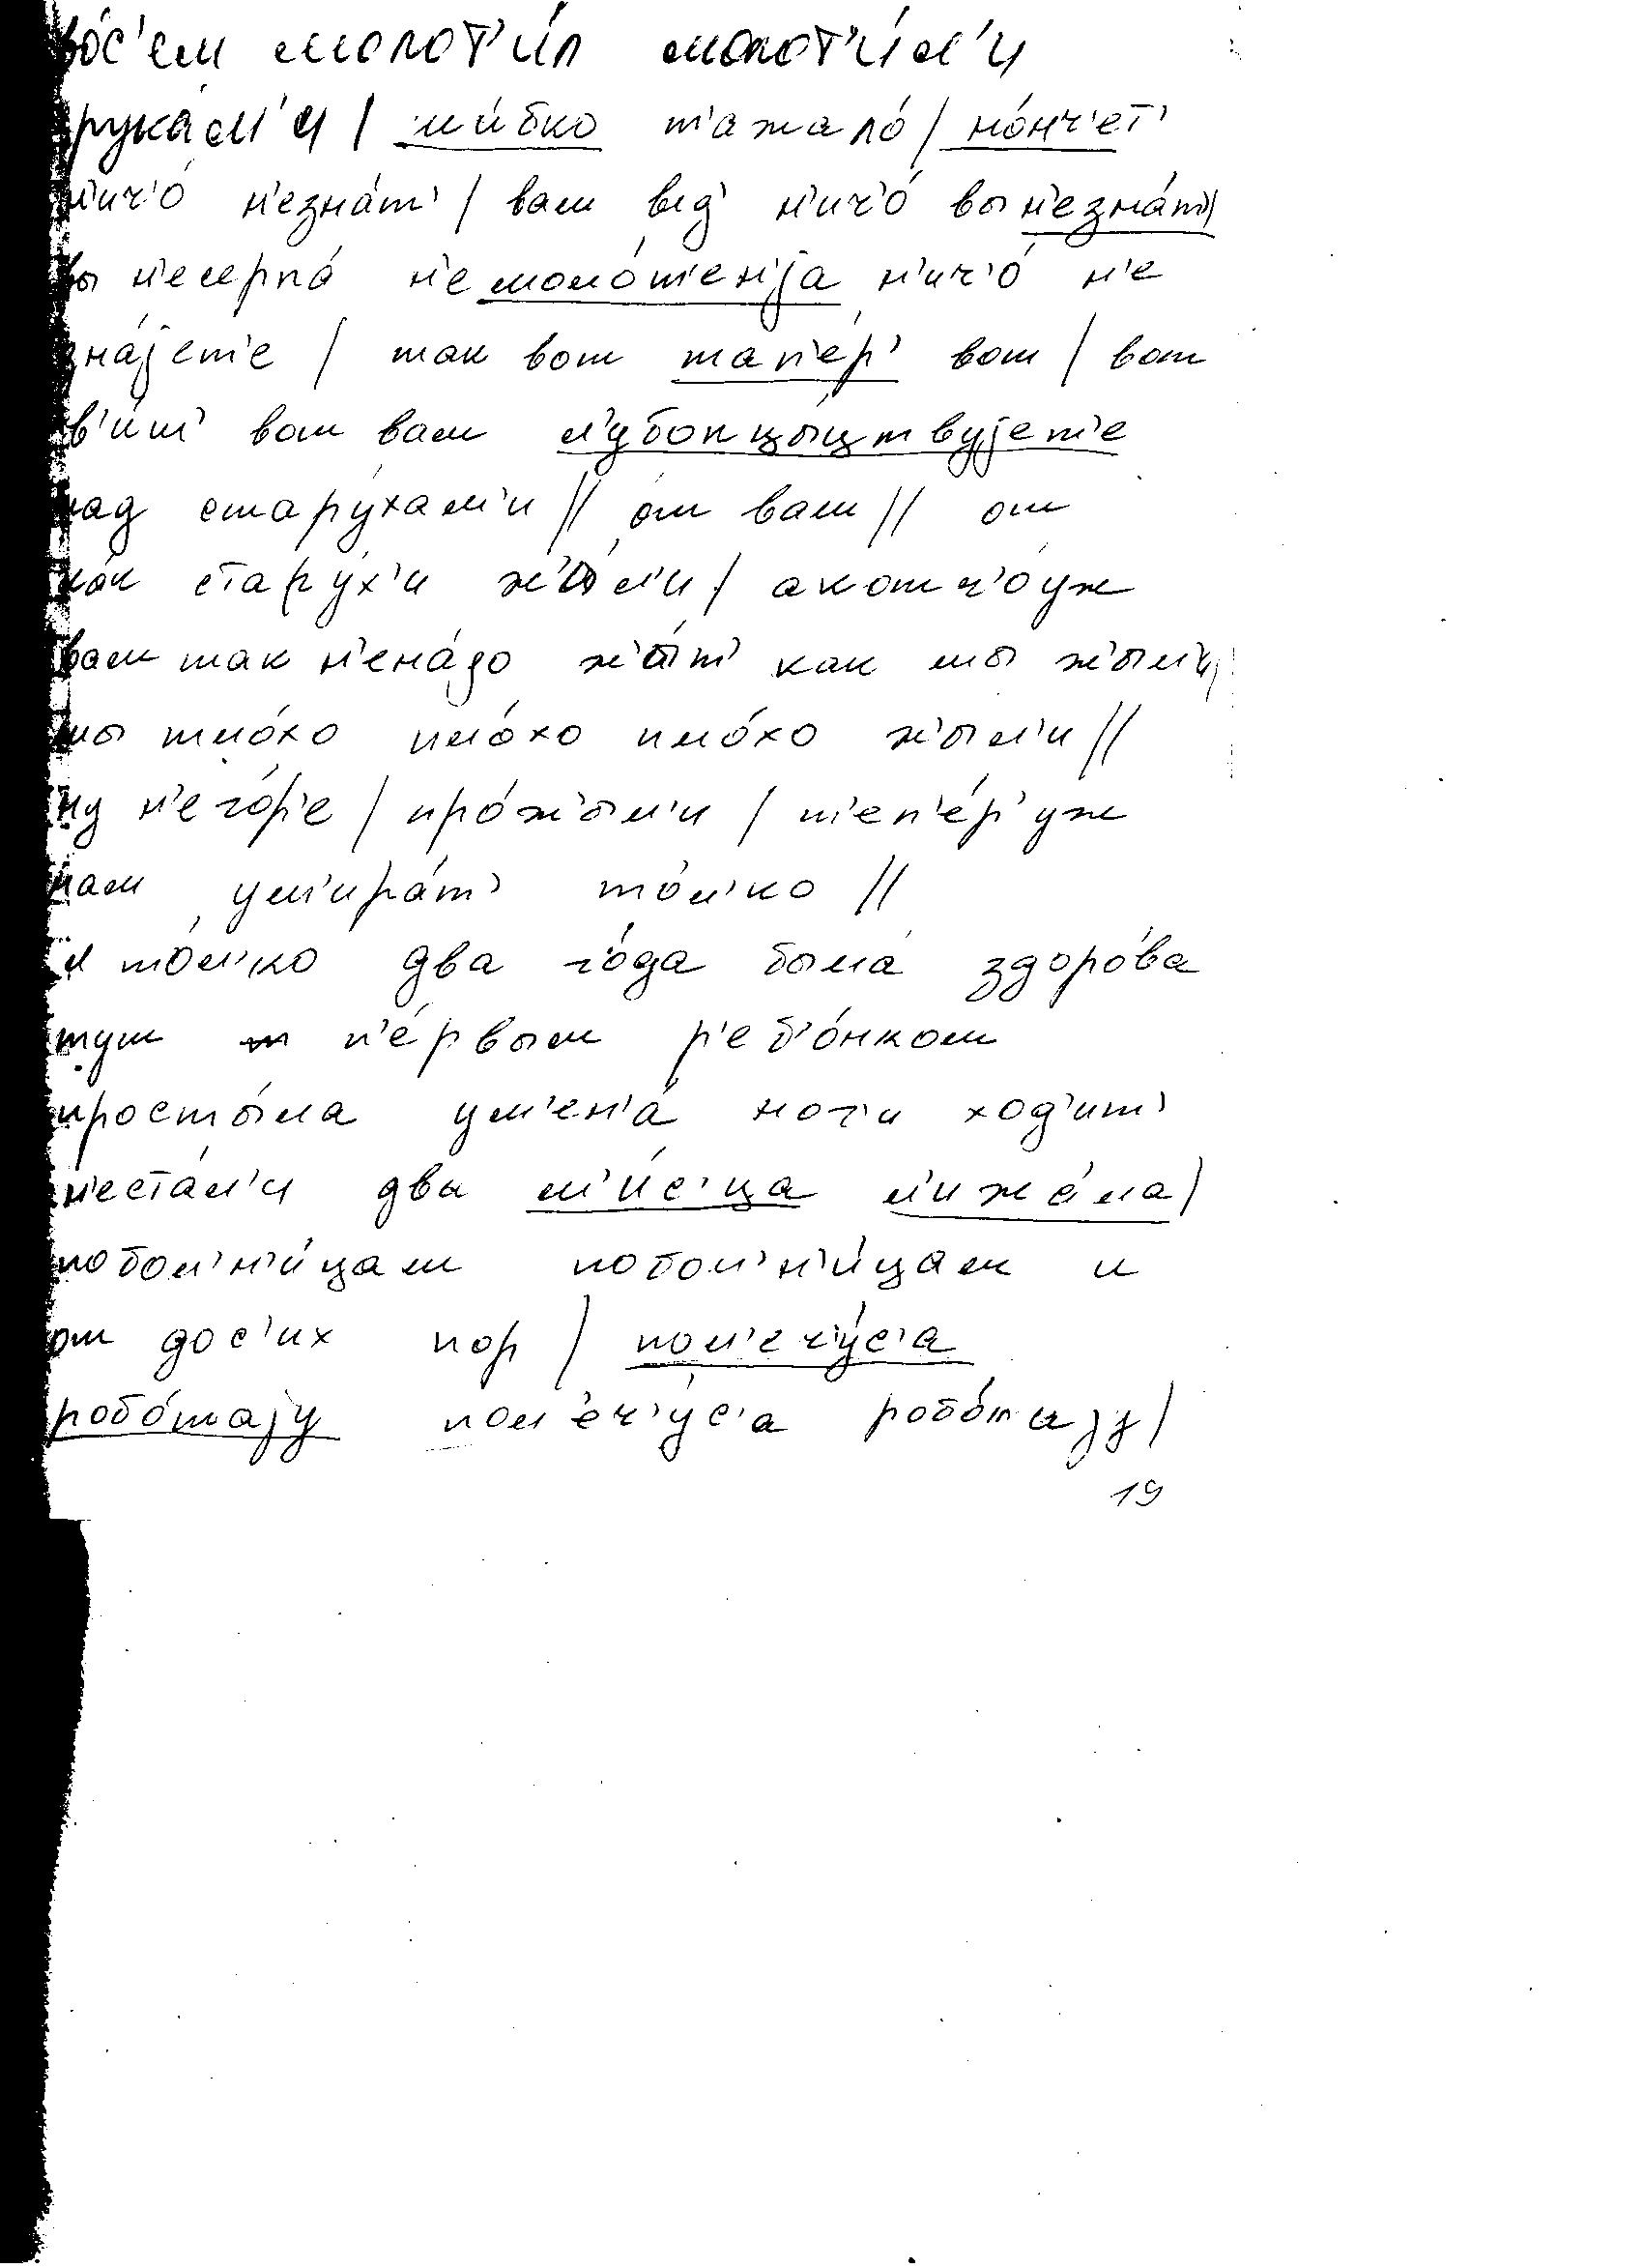 во́с'ем молот'и́л молот'и́л'и
рука́м'и / ши́бко т'ажало́ / но́нч'ет'
н'ич'о́ н'езна́т' / вам вед' н'ич'о́ вы н'езна́т'/
вы н'есерпа́ н'емоло́т'ен'jа н'ич'о́ н'е
зна́jет'е / так вот тап'е́р' вот / вот
в'и́т' вот вам л'убопцы́цтвуjет'е
над стару́хам'и // о́т вам // от
ка́к стару́х'и ж'ы́л'и / а кот ч'о́ уж
вам так н'ена́до ж'ы́т' как мы ж'ы́л'и/
мы пло́хо пло́хо пло́хо ж'ы́л'и //
ну н'его́р'е / про́ж'ыл'и / т'еп'е́р' уж
нам ум'ира́т' то́л'ко //
я то́л'ко два го́да была́ здоро́ва
тут п'е́рвым р'еб'о́нком
просты́ла ум'ен'а́ ног'и ход'ит'
н'еста́л'и два м'и́с'ца л'ижа́ла /
по бол'н'и́цам по бол'н'и́цам и
от дос'их пор / пол'еч'у́с'а
робо́таjу пол'еч'у́с'а робо́таjу /
19